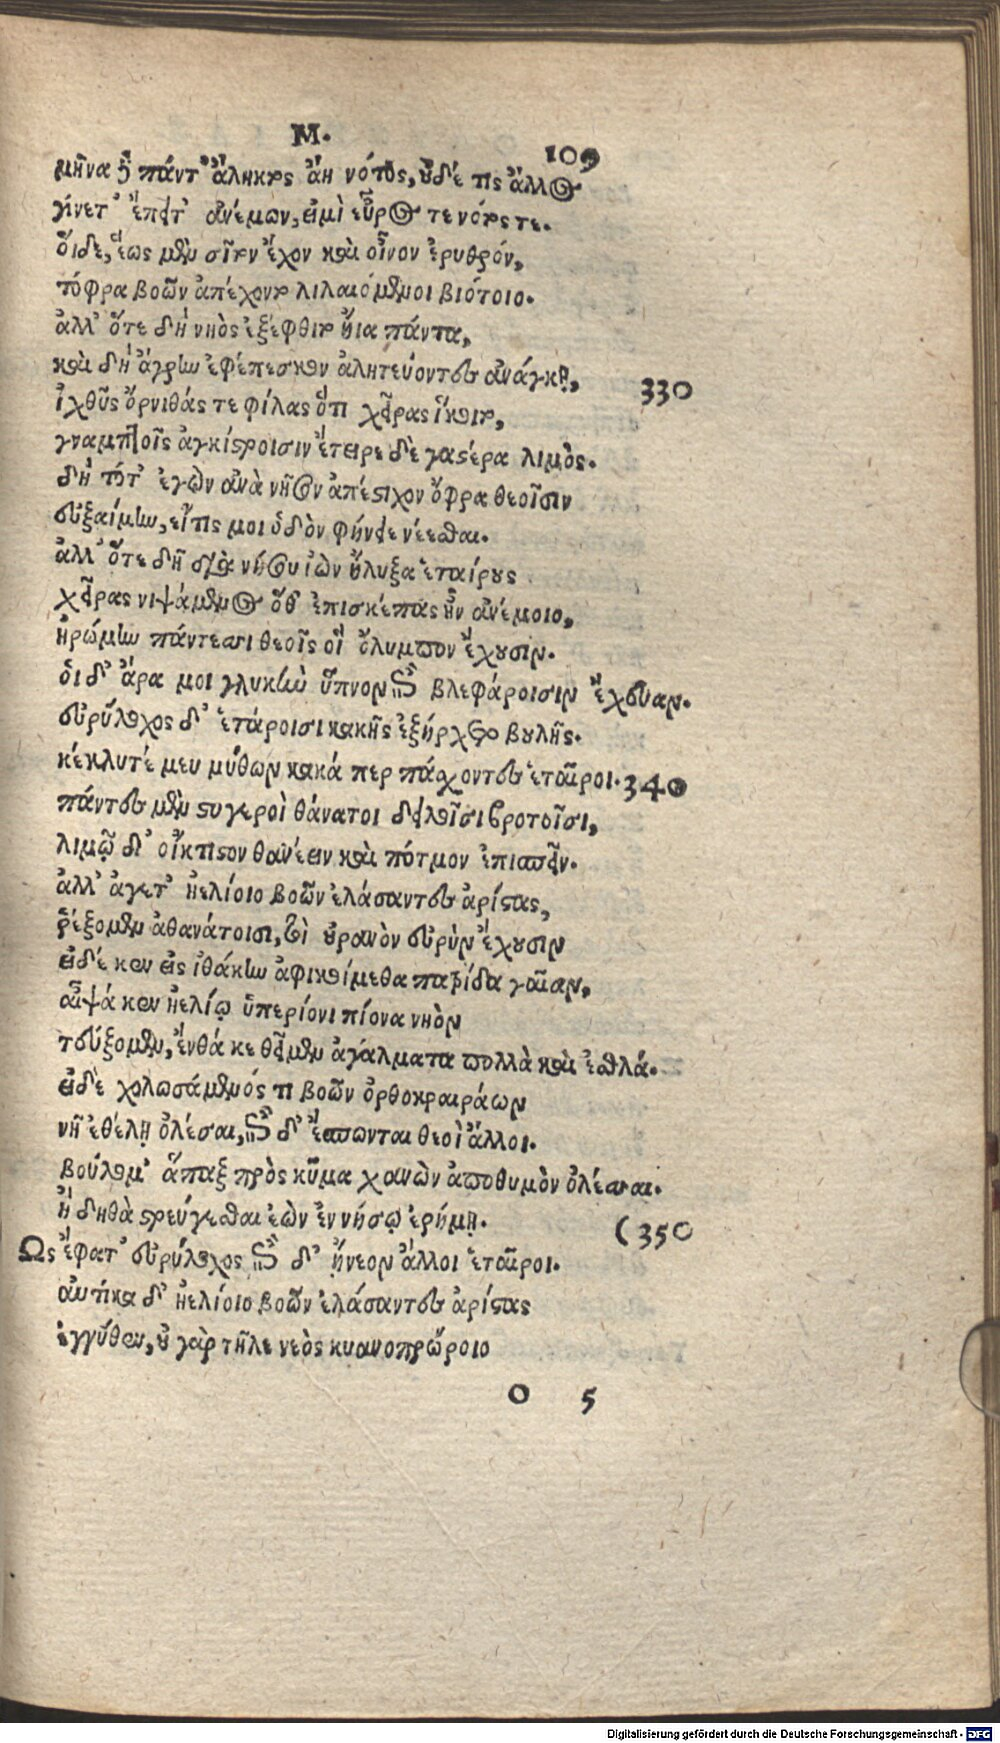 Μ.
109
μῆνα δὲ πάντ' ἄληκτος ἄη νότος, οὐδέ τις ἄλλος
γίνετ' ἔπειτ' ἀνέμων, εἰ μὶ εὖρος τε νότος τε.
ὅι δε, ἕως μὲν σῖτον ἔχον καὶ οἶνον ἐρυθρόν,
τόφρα βοῶν ἀπέχοντο λιλαιόμενοι βιότοιο.
ἀλλ' ὅτε δὴ νηὸς ἐξέφθιτο ἤϊα πάντα,
καὶ δὴ ἄγρην ἐφέπεσκον ἀλητεύοντες ἀνάγκῃ,
330
ἰχθῦς ὄρνιθάς τε φίλας ὅτι χεῖρας ἵκοιτο,
γναμπτοῖς ἀγκίστροισιν ἔτειρε δὲ γαστέρα λιμὸς.
δὴ τότ' ἐγὼν ἀνὰ νῆσον ἀπέστιχον ὄφρα θεοῖσιν
εὐξαίμην, εἴ τις μοι ὁδὸν φήνειε νέεσθαι.
ἀλλ' ὅτε δὴ διὰ νήσου ἰὼν ἤλυξα ἑταίρους
χεῖρας νιψάμενος ὅθ' ἐπισκέπας ἦν ἀνέμοιο,
ἠρώμην πάντεσσι θεοῖς οἳ ὄλυμπον ἔχουσιν.
ὁι δ' ἄρα μοι γλυκὺν ὕπνον ἐπὶ βλεφάροισιν ἔχευαν.
εὐρύλοχος δ' ἑτάροισι κακῆς ἐξήρχετο βουλῆς.
κέκλυτέ μευ μύθων κακά περ πάσχοντες ἑταῖροι.
340
πάντες μὲν στυγεροὶ θάνατοι δειλοῖσι βροτοῖσι,
λιμῷ δ' οἴκτιστον θανέειν καὶ πότμον ἐπισπεῖν.
ἀλλ' ἄγετ' ἠελίοιο βοῶν ἐλάσαντες ἀρίστας,
ῥέξομεν ἀθανάτοισι, τοὶ οὐρανὸν εὐρὺν ἔχουσιν
εἰ δέ κεν εἰς ἰθάκην ἀφικοίμεθα πατρίδα γαῖαν,
αἶψά κεν ἠελίῳ ὑπερίονι πίονα νηὸν
τεύξομεν, ἔνθά κε θεῖμεν ἀγάλματα πολλὰ καὶ ἐσθλά.
εἰ δὲ χολωσάμενός τι βοῶν ὀρθοκραιράων
νῆ' ἐθέλῃ ὀλέσαι, ἐπὶ δ' ἕσπωνται θεοὶ ἄλλοι.
βούλομ' ἅπαξ πρὸς κῦμα χανὼν ἀποθυμὸν ὀλέσσαι.
ἢ δηθὰ στρεύγεσθαι ἐὼν ἐν νήσῳ ἐρήμῃ.
(350
Ὣς ἔφατ' εὐρύλοχος ἐπὶ δ' ᾔνεον ἄλλοι ἑταῖροι.
αὐτίκα δ' ἠελίοιο βοῶν ἐλάσαντες ἀρίστας
ἐγγύθεν, οὐ γὰρ τῆλε νεὸς κυανοπρῴροιο
O 5
Digitalisierung gefördert durch die Deutsche Forschungsgemeinschaft - DFG